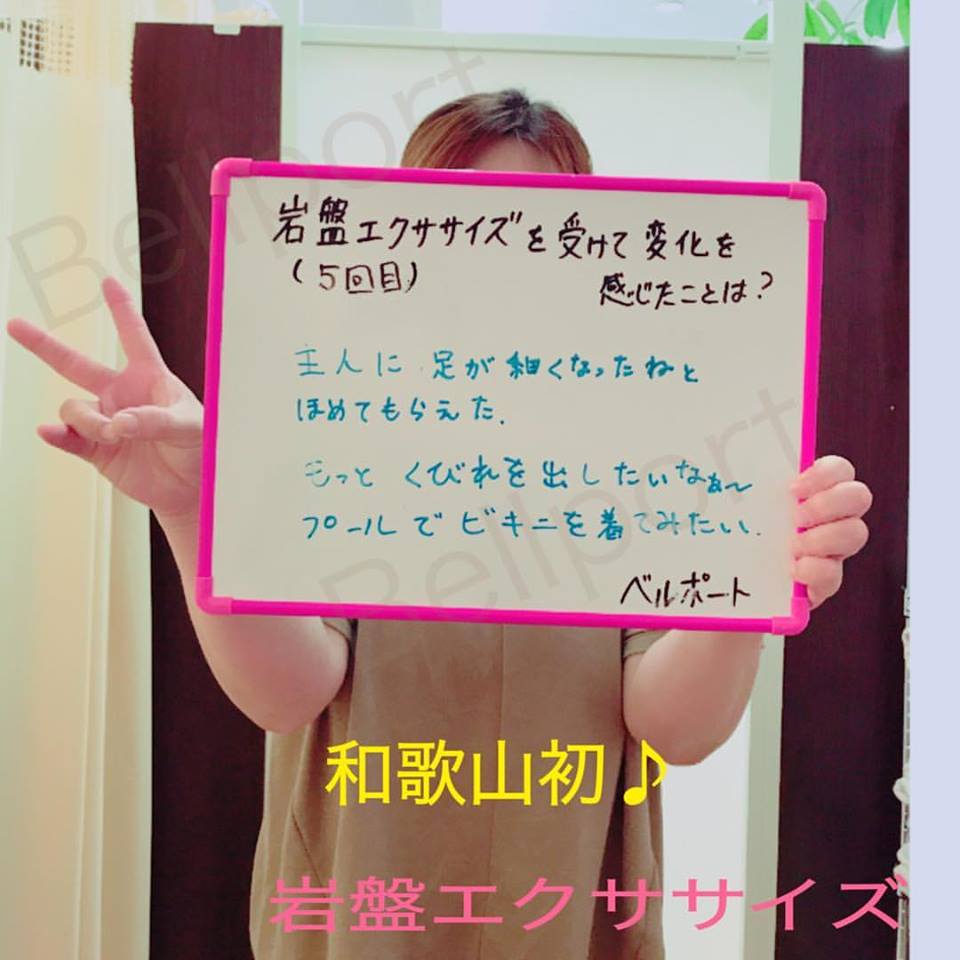 岩盤エクササイズを受けて変化を
(5回目) 感じたことは?
主人に、足が細くなったねと
ほめてもらえた.
もっと くびれを出したいなぁ〜
プールでビキニを着てみたい.
ベルポート
和歌山初♪
岩盤エクササイズ
Bellport
Bellport